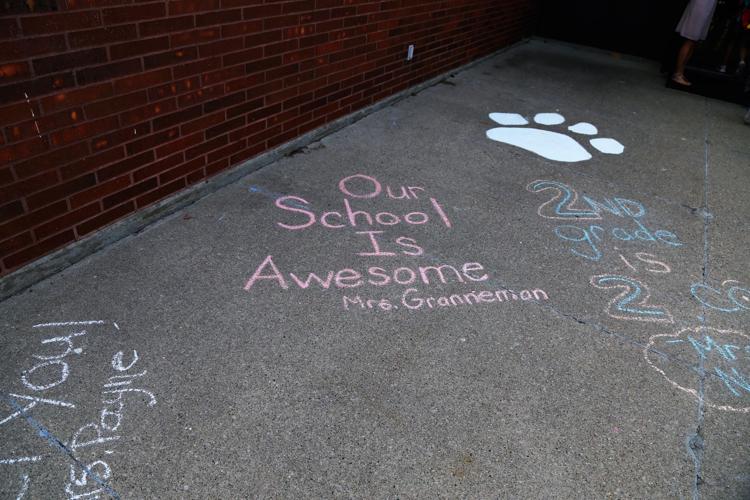 Our
School
Is
Awesome
Mrs. Granneman
2ND
grade
is
2
Mr
You!
Payne